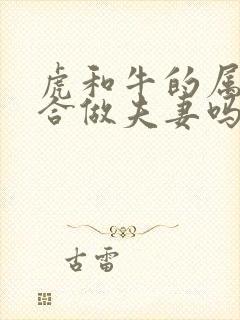 虎和牛的属
合做夫妻吗
古雷